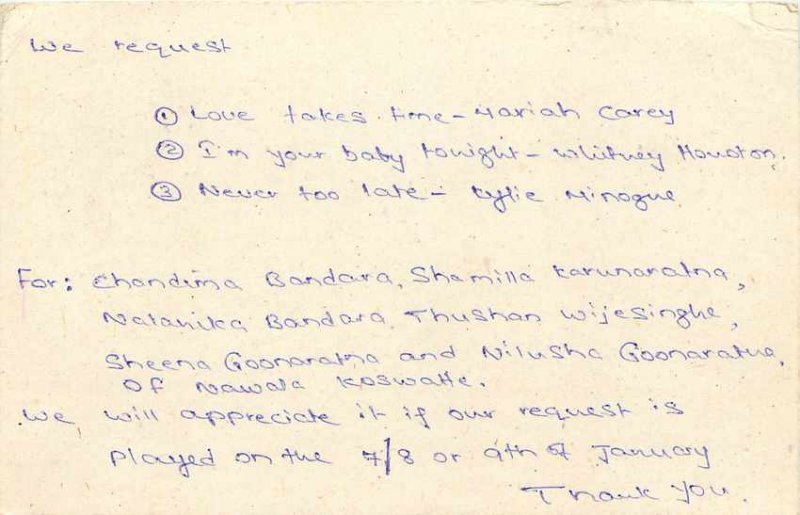 We request
① Love takes time - Mariah Carey
② I'm your baby tonight - Whitney Houston.
③ Never too late - Kylie Minogue.
For: Chandima Bandara, Shamilla Karunaratna,
Natahika Bandara, Thushan Wijesinghe,
Sheena Goonaratna and Nilusha Goonaratna,
Of Nawala Koswatte.
We, will appreciate it if our request is
played on the 7/8 or 9th of January
Thank you.